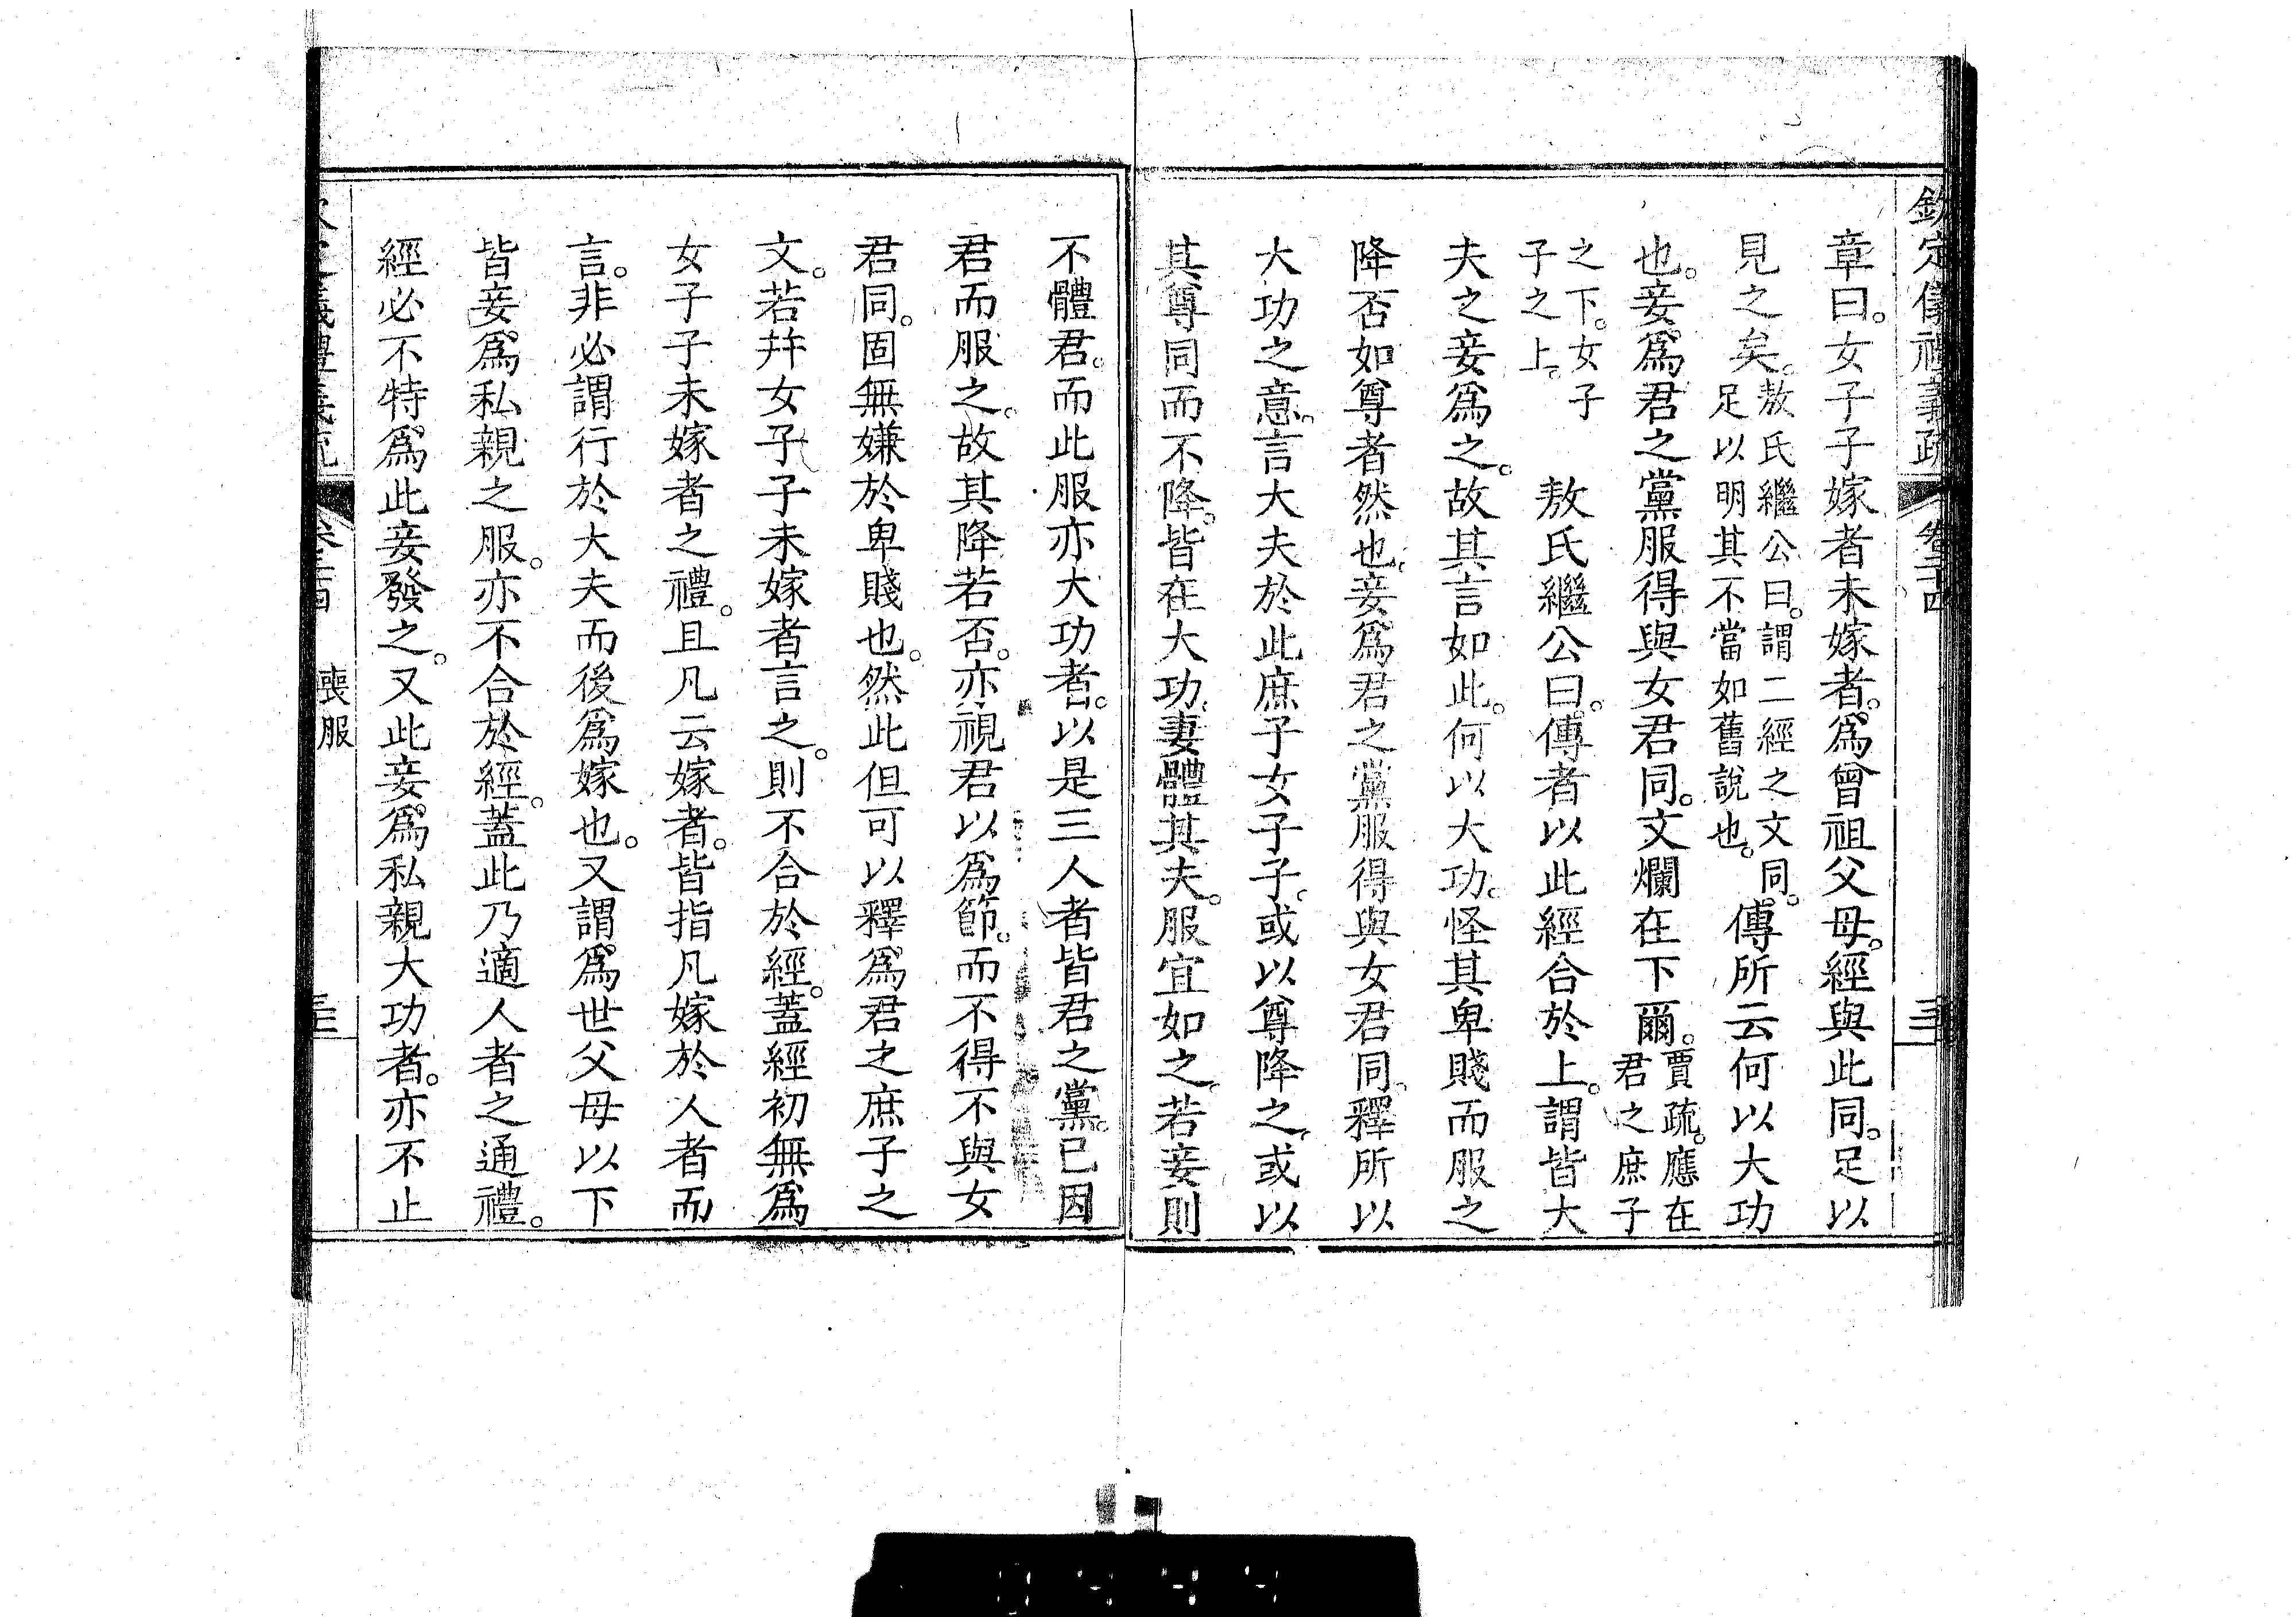 欽定儀禮義疏 卷二十四
章曰。女子子嫁者未嫁者。爲曾祖父母。經與此同。足以
見之矣。敖氏繼公曰。謂二經之文同。足以明其不當如舊說也。傳所云何以大功
也。妾。爲君之黨服得與女君同。文爛在下爾。賈疏。應在君之庶子
之下。女子子之上。 敖氏繼公曰。傳者以此經合於上。謂皆大
夫之妾爲之。故其言如此。何以大功。怪其卑賤而服之
降否如尊者然也。妾。爲君之黨服得與女君同。釋所以
大功之意。言大夫於此庶子女子子。或以尊降之。或以
其尊同而不降。皆在大功。妻體其夫。服宜如之。若妾則
不體君。而此服亦大功者。以是三人者皆君之黨。已因
君而服之。故其降若否。亦視君以爲節。而不得不與女
君同。固無嫌於卑賤也。然此但可以釋爲君之庶子之
文。若幷女子子未嫁者言之。則不合於經。蓋經初無爲
女子子未嫁者之禮。且凡云嫁者。皆指凡嫁於人者而
言。非必謂行於大夫而後爲嫁也。又謂爲世父母以下
皆妾爲私親之服。亦不合於經。蓋此乃適人者之通禮。
經必不特爲此妾發之。又此妾爲私親大功者。亦不止
喪服